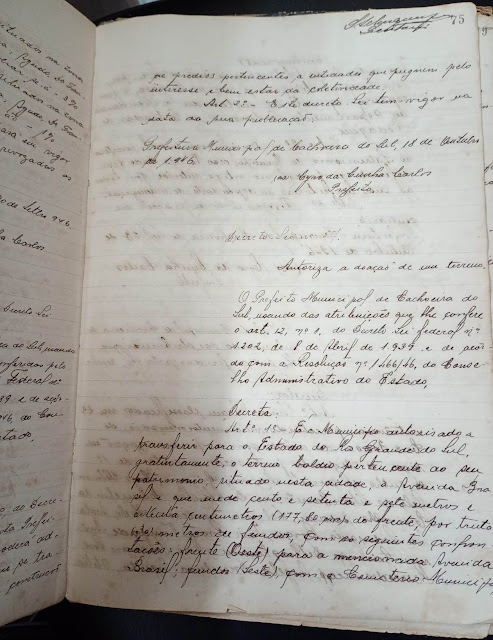 75
os predios pertencentes a entidades que pugnem pelo
interesse e bem estar da coletividade.
Art. 2º - Este decreto lei tem vigor na
data da sua publicação.
Prefeitura Municipal de Cachoeira do Sul, 18 de Outubro
de 1946.
Cyro da Cunha Carlos
Prefeito.
Decreto-Lei nº
Autoriza a doação de um terreno.
O Prefeito Municipal de Cachoeira do
Sul, usando das atribuições que lhe confere
o art. 12, nº 1, do Decreto Lei federal nº
1.202, de 8 de Abril de 1939 e de acor
do com a Resolução nº 1466/46, do Conse-
lho Administrativo do Estado,
Decreta:
Art. 1º É o Município autorisado a
transferir para o Estado do Rio Grande do Sul,
gratuitamente, o terreno baldio pertencente ao seu
patrimonio, situado nesta cidade, á Avenida Bra
sil e que mede cento e setenta e sete metros e
oitenta centimetros (177,80 ms) de frente, por trinta
metros de fundos, com as seguintes confron
tações: frente (Oeste) para a mencionada Avenida
Brasil; fundos (Leste), com o Cemiterio Municipal